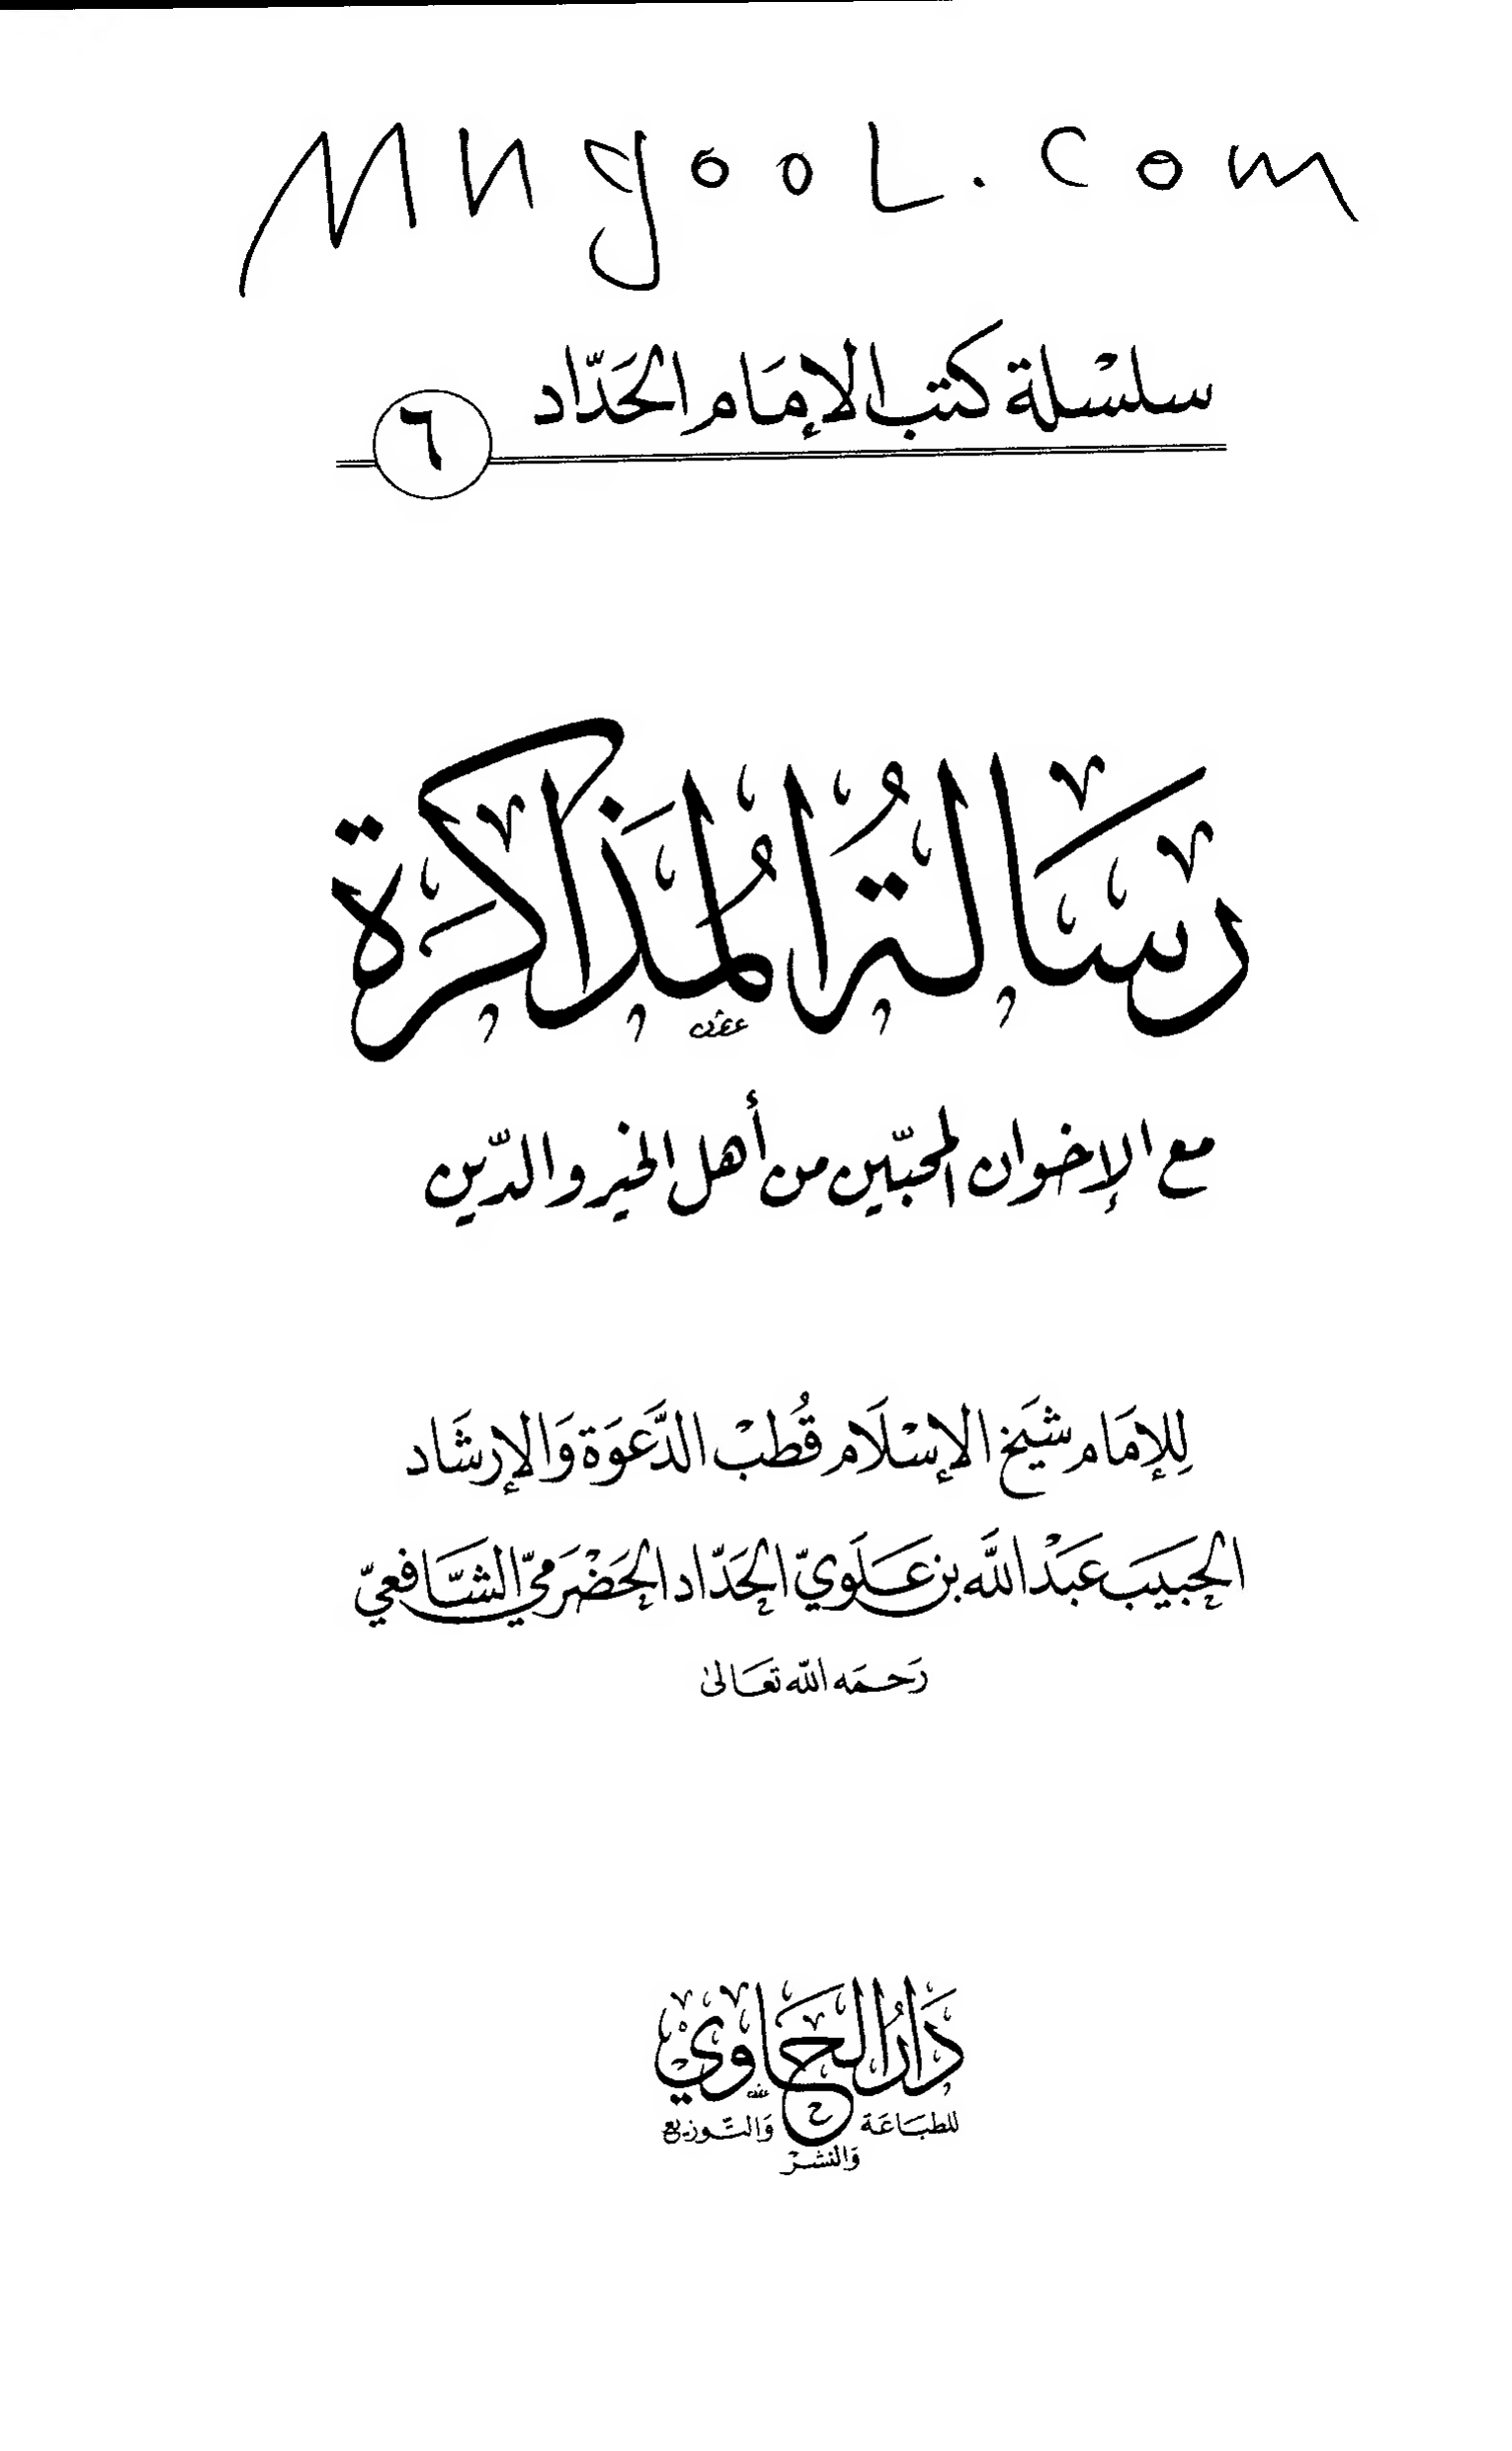 Mngool.com
سلسلة كتب الإمام الحدّاد
٦
رسالة المذاكرة
مع الإخوان المحبّين من أهل الخير والدّين
للإمام شيخ الإسلام قطب الدّعوة والإرشاد
الحبيب عبد الله بن علويّ الحدّاد الحضرميّ الشافعيّ
رحمه الله تعالى
دار الحاوي
للطباعة والنشر والتوزيع